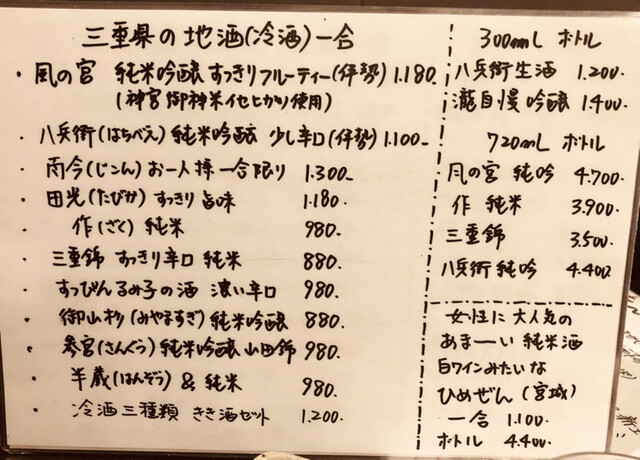 三重県の地酒(冷酒)一合
・風の宮 純米吟醸 すっきりフルーティー(伊勢) 1.180.
(神宮御神米イセヒカリ使用)
・八兵衛(はちべえ)純米吟醸 少し辛口(伊勢) 1.100.
・而今(じこん)お一人様一合限り 1.300
・田光(たびか)すっきり旨味 1.180.
・作(ざく)純米 980.
・三重錦 すっきり辛口 純米 880.
・すっぴんるみ子の酒 濃い辛口 980.
・御山杉(みやますぎ)純米吟醸 880.
・参宮(さんぐう)純米吟醸 山田錦 980.
・半蔵(はんぞう)& 純米 980.
・冷酒三種類 きき酒セット 1.200.
300mL ボトル
八兵衛生酒 1.200.
瀧自慢 吟醸 1.400
720mL ボトル
風の宮 純吟 4.700
作 純米 3.900.
三重錦 3.500.
八兵衛純吟 4.400.
女性に大人気の
あまーい純米酒
白ワインみたいな
ひめぜん(宮城)
一合 1.100.
ボトル 4.400.